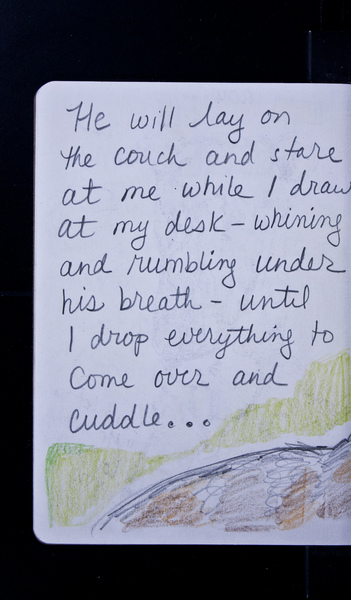 He will lay on
the couch and stare
at me while I draw
at my desk – whining
and rumbling under
his breath – until
I drop everything to
come over and
cuddle...